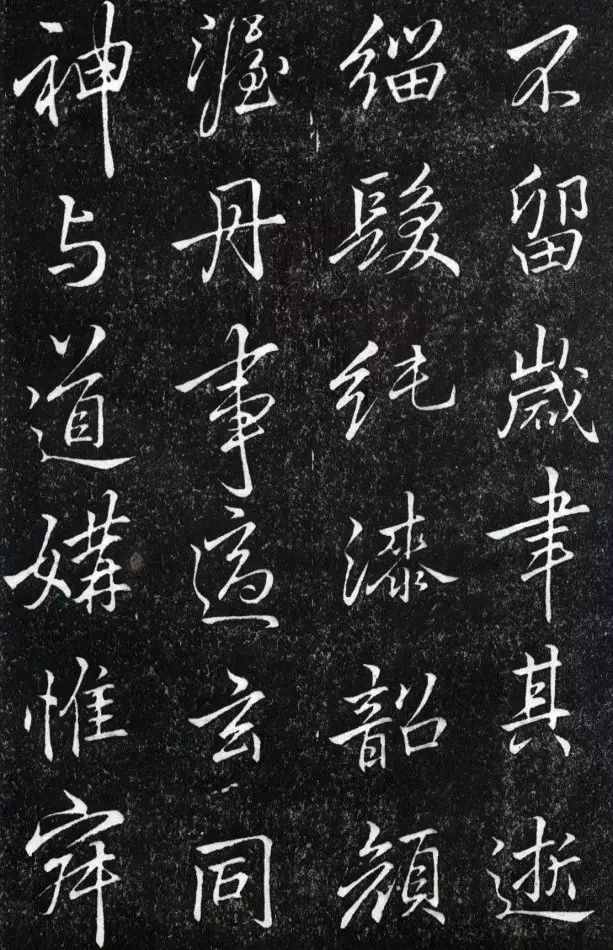 不留歲聿其逝
緇髮純漆韶顔
渥丹事適玄同
神与道媾惟